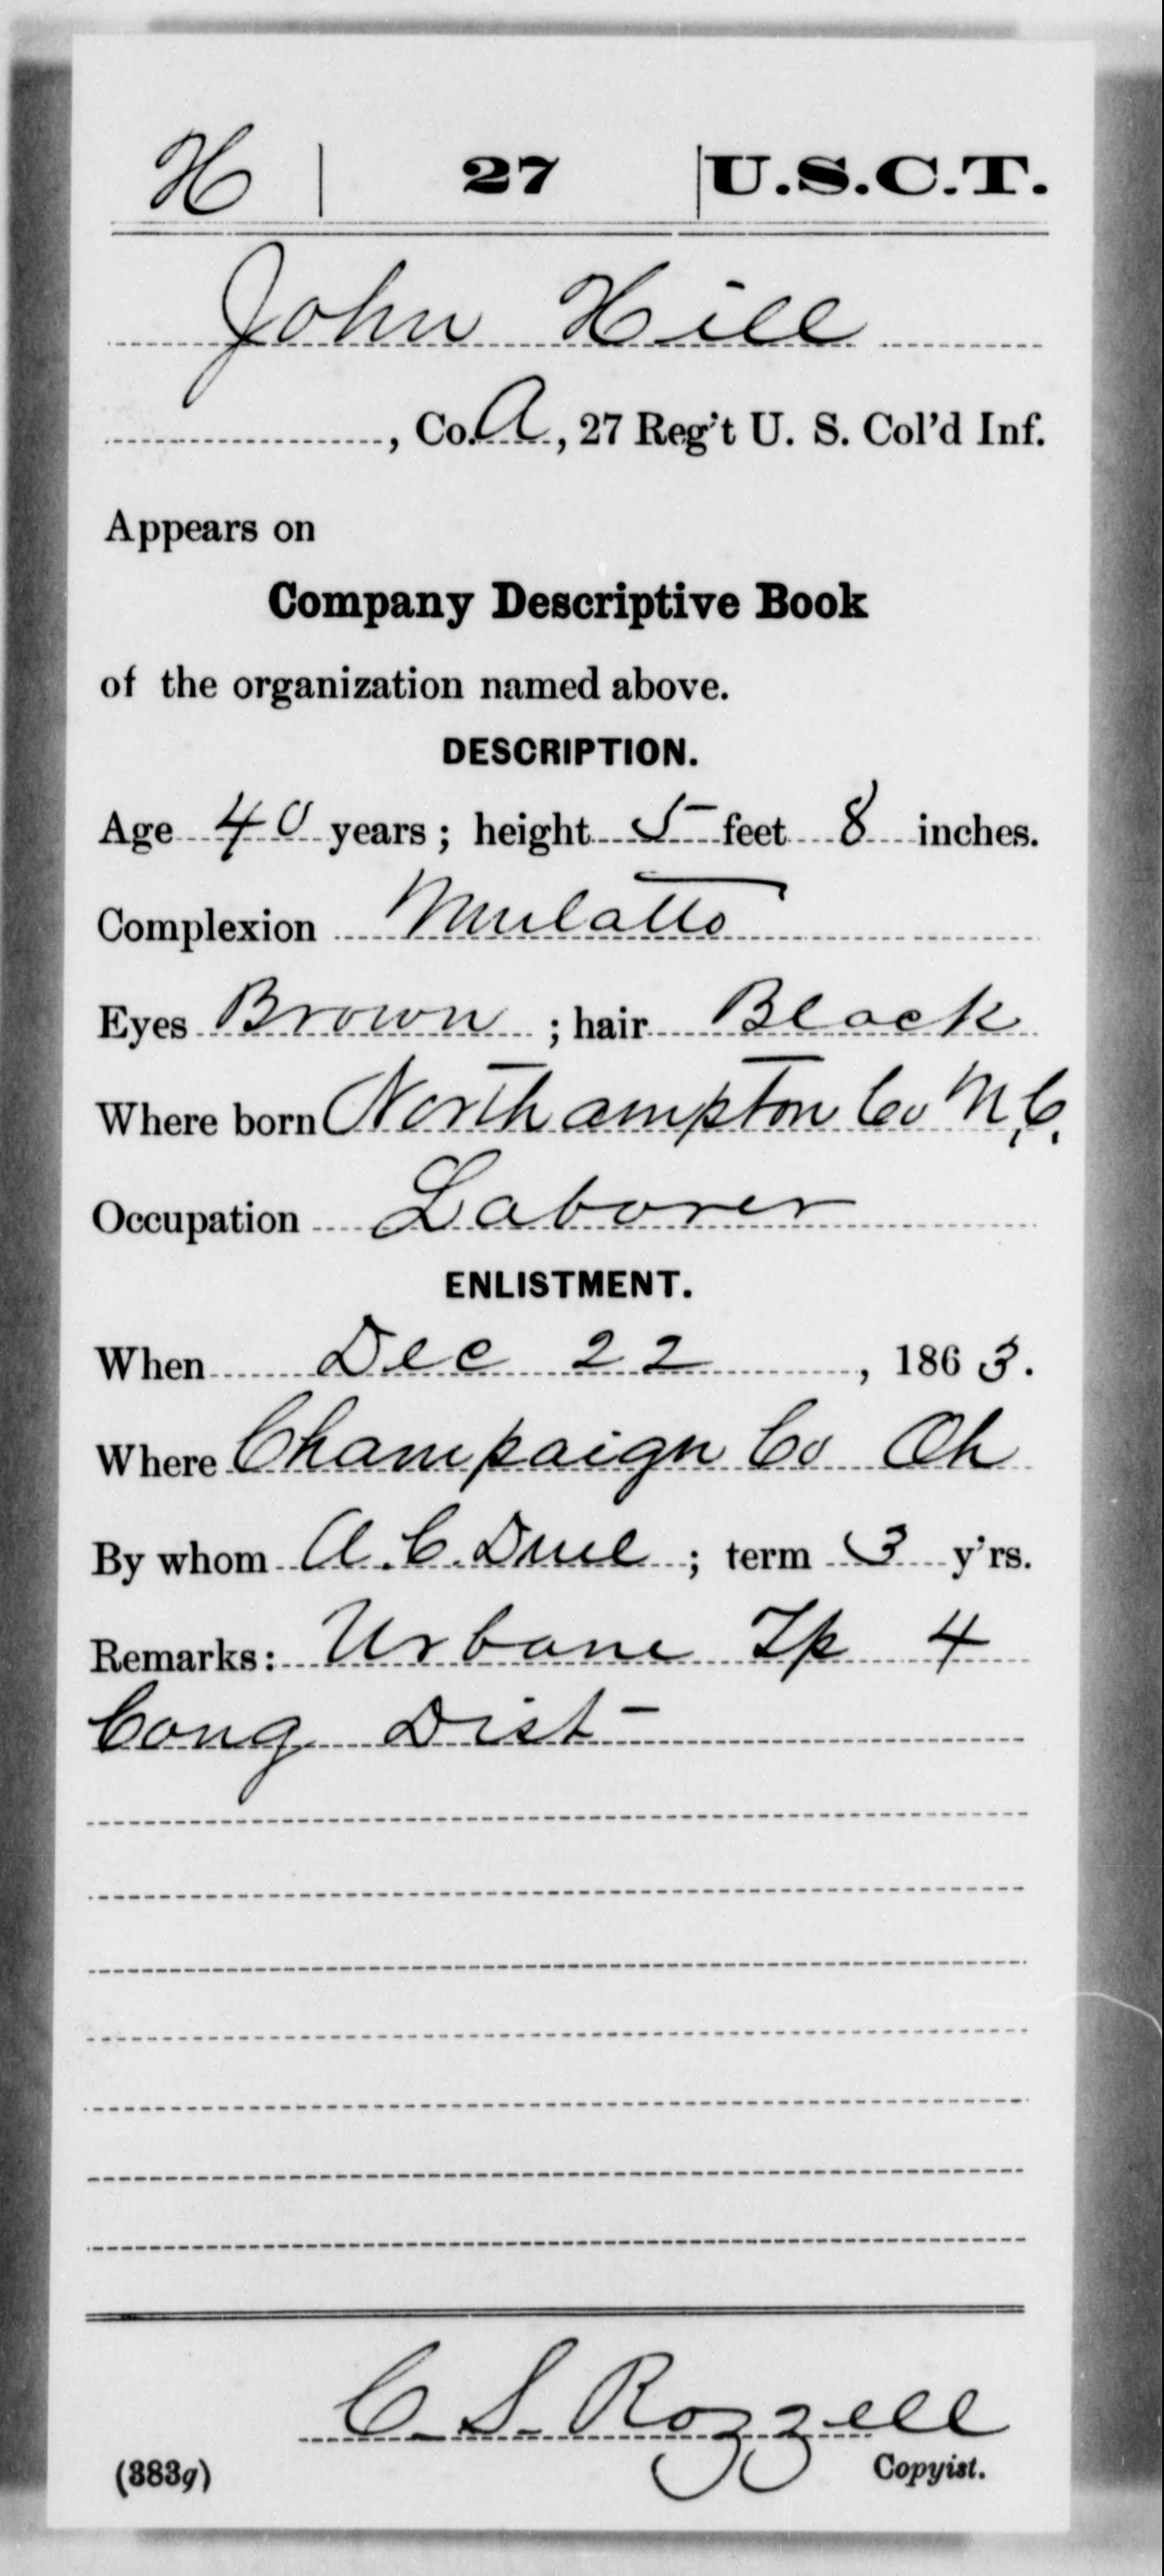 H | 27 | U.S.C.T.
John Hill
, Co. A, 27 Reg't U. S. Col'd Inf.
Appears on
Company Descriptive Book
of the organization named above.
DESCRIPTION.
Age 40 years; height 5 feet 8 inches.
Complexion Mulatto
Eyes Brown; hair Black
Where born Northampton Co N.C.
Occupation Laborer
ENLISTMENT.
When Dec 22, 1863.
Where Champaign Co Oh
By whom A. C. Duel; term 3 y'rs.
Remarks: Urbane Tp 4
Cong Dist
C. S. Rozzell
(383g) Copyist.